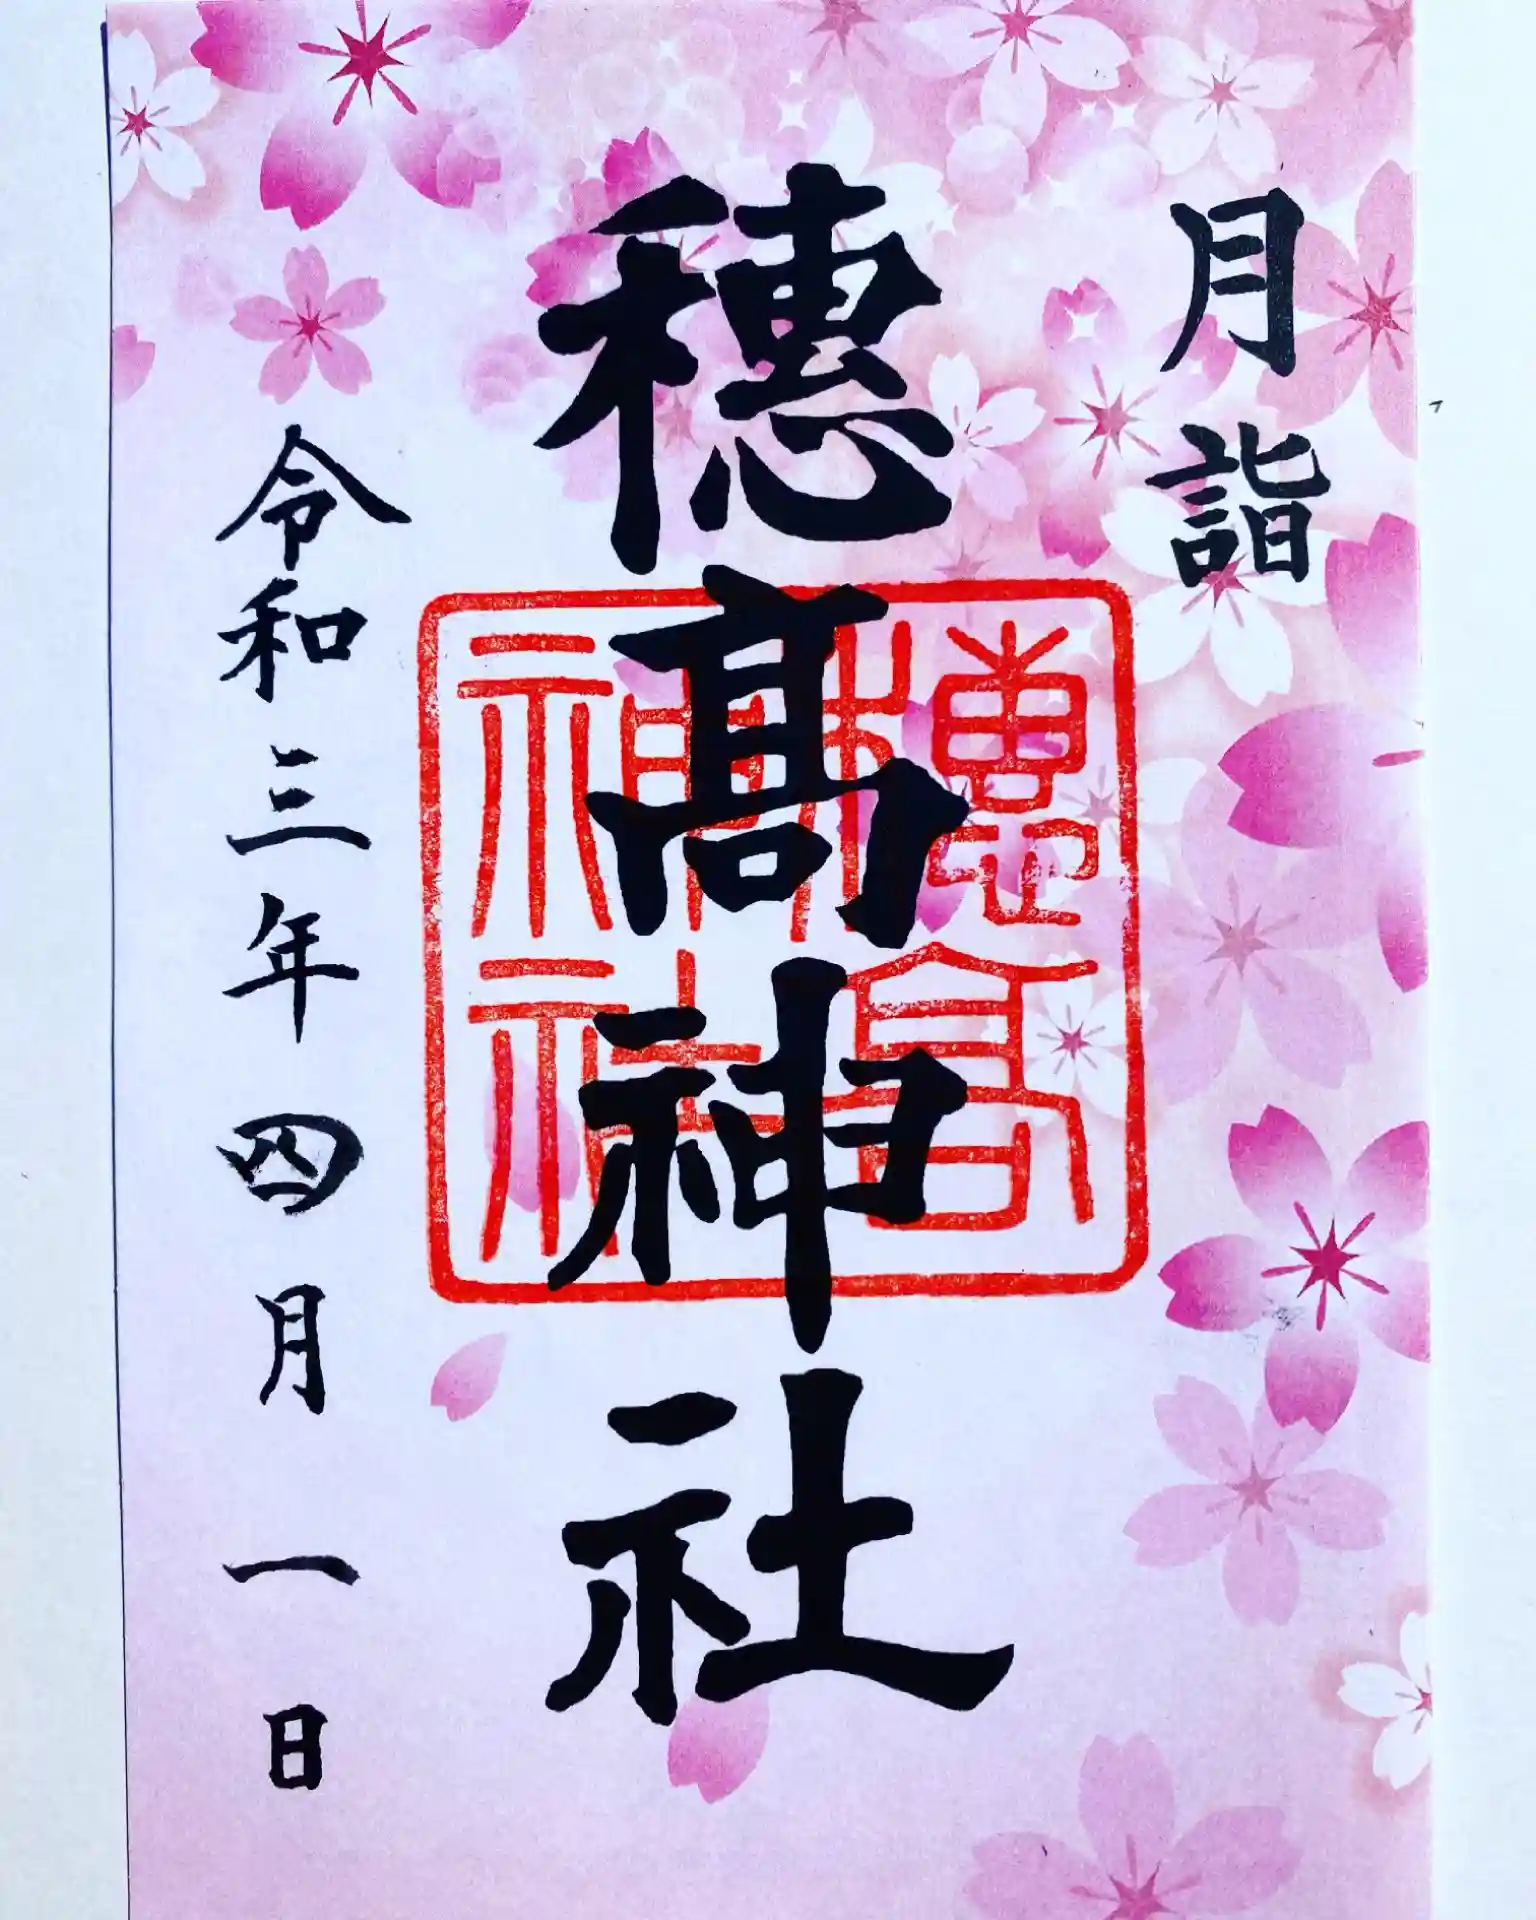 月詣
穂髙神社
穗高神社
令和三年四月一日